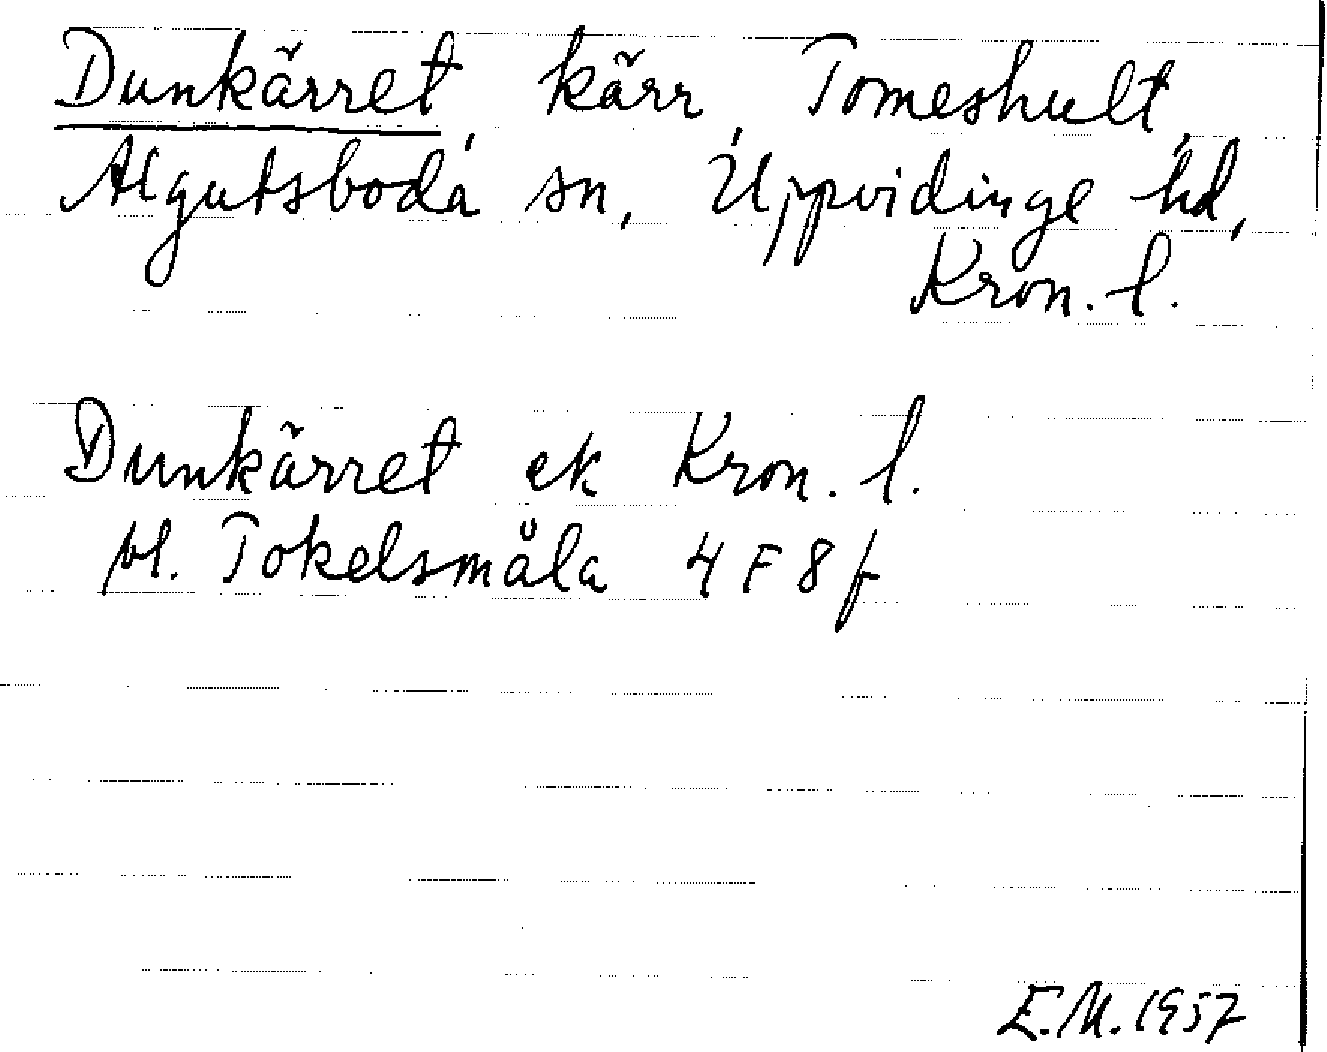 Dunkärret, kärr, Tomeshult,
Algutsboda sn, Uppvidinge hd,
Kron. l.
Dunkärret ek Kron. l.
bl. Tokelsmåla 4 F 8 f
E.M. 1957